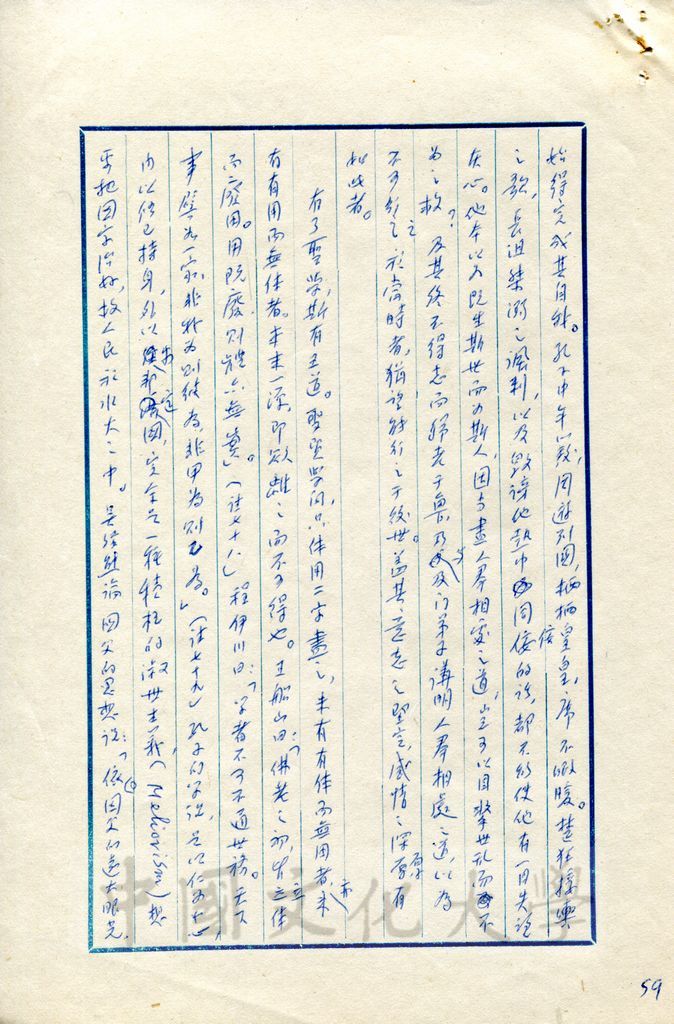 始得完成其自我。孔子中年以後,周遊列國,栖栖皇皇,席不暇煖。楚狂接輿
之歌,長沮桀溺之諷刺,以及毀謗他熱中同佞的話,都不能使他有一日失望
灰心。他本以為既生斯世而為斯人,因當盡人群相處之道,豈可以目擊世亂而不
為之救?及其終不得志而歸老于魯,乃與及门弟子講明人羣相處之道,以為
不可行之於當時者,猶望能行之于後世。蓋其意志之堅定,感情之深厚有
如此者。
有了聖學,斯有王道。聖賢學問,只体用二字盡之,未有有体而無用者,亦未
有有用而無体者。本末一源,即欲離之而不可得也。王船山曰:「佛老之初,皆立体
而廢用。用既廢,則體亦無實。」(註七十八)程伊川曰:「学者不可不通世務。天下
事譬如一家,非我為則彼為,非甲為則乙為。」(註七十九)孔子的学說,是以仁为中心,
內以修己持身,外以安邦定國,完全是一種積極的淑世主義(Meliorism)想
要把国家治好,救人民於水火之中。吴經熊論國父的思想說:「依国父的遠大眼光,
59
中國文化大學